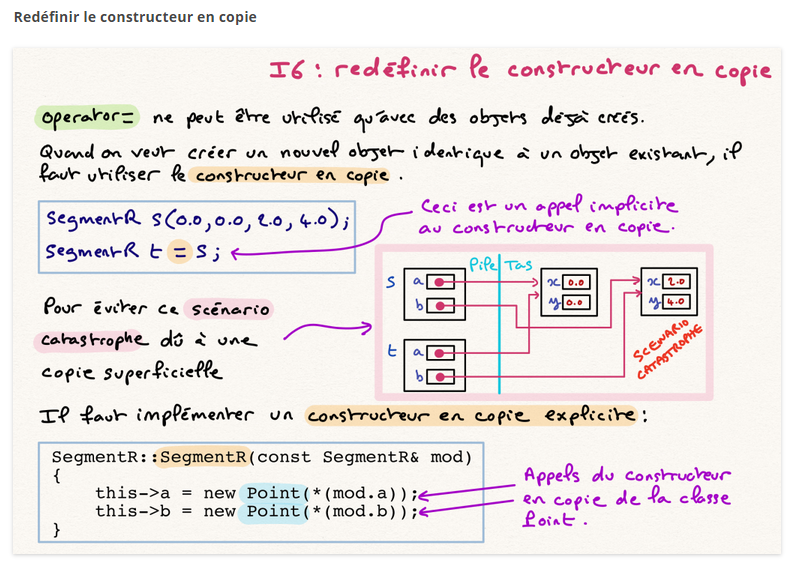 Redéfinir le constructeur en copie
I6 : redéfinir le constructeur en copie
operator= ne peut être utilisé qu'avec des objets déjà créés.
Quand on veut créer un nouvel objet identique à un objet existant, il
faut utiliser le constructeur en copie.
SegmentR s(0.0,0.0,2.0,4.0);
SegmentR t = s;
Ceci est un appel implicite
au constructeur en copie.
Pile Tas
s a x 0.0 x 2.0
b y 0.0 y 4.0
t a
b
SCENARIO
CATASTROPHE
Pour éviter ce scénario
catastrophe dû à une
copie superficielle
Il faut implémenter un constructeur en copie explicite :
SegmentR::SegmentR(const SegmentR& mod)
{
this->a = new Point(*(mod.a));
this->b = new Point(*(mod.b));
}
Appels du constructeur
en copie de la classe
Point.